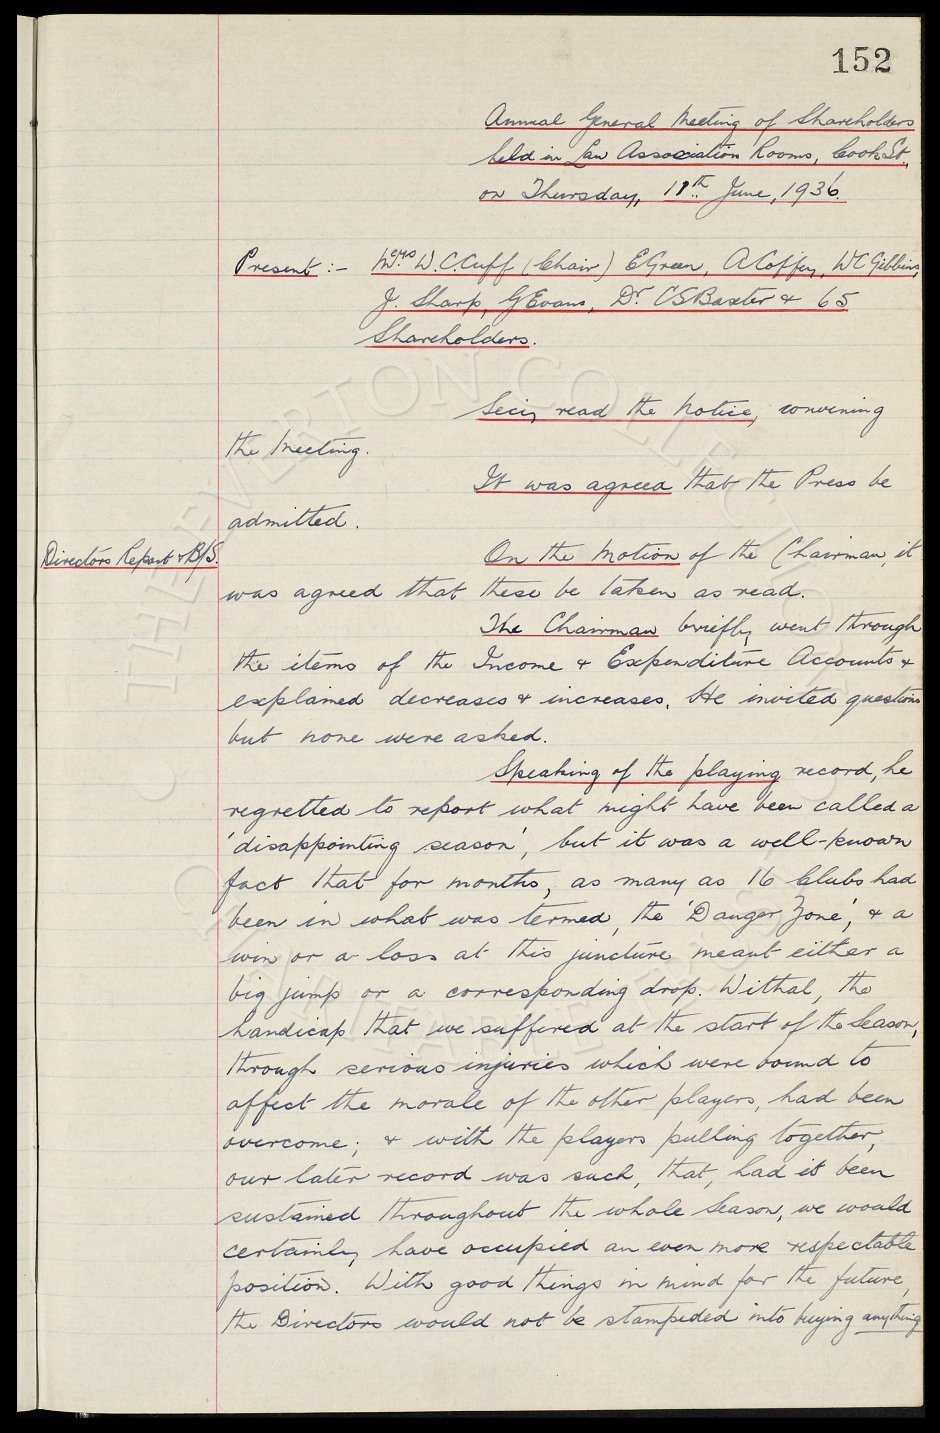 152
Annual General Meeting of Shareholders
held in Law Association Rooms, Cook St.,
on Thursday, 11th June, 1936.
Present :- Messrs W.C. Cuff (Chair) E Green, A Coffey, W C Gibbins,
J. Sharp, G Evans, Dr. C S Baxter & 65
Shareholders.
Secy read the Notice, convening
the Meeting.
It was agreed that the Press be
admitted.
Directors Report & B/S.
On the Motion of the Chairman, it
was agreed that these be taken as read.
The Chairman briefly went through
the items of the Income & Expenditure Accounts &
explained decreases & increases. He invited questions
but none were asked.
Speaking of the playing record, he
regretted to report what might have been called a
'disappointing season', but it was a well-known
fact that for months, as many as 16 Clubs had
been in what was termed, the 'Danger Zone', & a
win or a loss at this juncture meant either a
big jump or a corresponding drop. Withal, the
handicap that we suffered at the start of the Season,
through serious injuries which were bound to
affect the morale of the other players, had been
overcome; & with the players pulling together,
our later record was such, that, had it been
sustained throughout the whole Season, we would
certainly have occupied an even more respectable
position. With good things in mind for the future,
the Directors would not be stampeded into buying anything
THE EVERTON COLLECTION
CHARITABLE TRUST